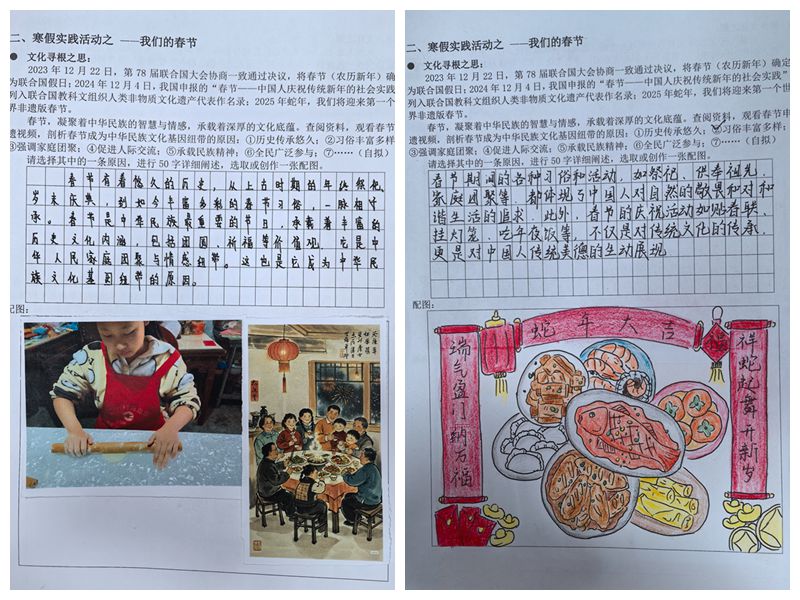 二、寒假实践活动之 ——我们的春节
● 文化寻根之思：
2023 年 12 月 22 日，第 78 届联合国大会协商一致通过决议，将春节（农历新年）确定
为联合国假日；2024 年 12 月 4 日，我国申报的“春节——中国人庆祝传统新年的社会实践”
列入联合国教科文组织人类非物质文化遗产代表作名录；2025 年蛇年，我们将迎来第一个
界非遗版春节。
春节，凝聚着中华民族的智慧与情感，承载着深厚的文化底蕴。查阅资料，观看春节
遗视频，剖析春节成为中华民族文化基因纽带的原因：①历史传承悠久；②习俗丰富多样
③强调家庭团聚；④促进人际交流；⑤承载民族精神；⑥全民广泛参与；⑦……（自拟）
请选择其中的一条原因，进行 50 字详细阐述，选取或创作一张配图。
春节有着悠久的历史，从上古时期的年
岁末庆典，到如今丰富多彩的春节习俗，一脉相
承。春节是中华民族最重要的节日，承载着丰富的
历史文化内涵，包括团圆、祈福等价值观，它是中
华人民家庭团聚与情感纽带。这也是它成为中华民
族文化基因纽带的原因。
配图：
二、寒假实践活动之 ——我们的春节
● 文化寻根之思：
2023 年 12 月 22 日，第 78 届联合国大会协商一致通过决议，将春节（农历新年）确
为联合国假日；2024 年 12 月 4 日，我国申报的“春节——中国人庆祝传统新年的社会实践”
列入联合国教科文组织人类非物质文化遗产代表作名录；2025 年蛇年，我们将迎来第一个世
界非遗版春节。
春节，凝聚着中华民族的智慧与情感，承载着深厚的文化底蕴。查阅资料，观看春节
遗视频，剖析春节成为中华民族文化基因纽带的原因：①历史传承悠久；②习俗丰富多样；
③强调家庭团聚；④促进人际交流；⑤承载民族精神；⑥全民广泛参与；⑦……（自拟）
请选择其中的一条原因，进行 50 字详细阐述，选取或创作一张配图。
春节期间的各种习俗和活动，如祭祀、供奉祖先、
家庭团聚等，都体现了中国人对自然的敬畏和对和
谐生活的追求。此外，春节的庆祝活动如贴春联、
挂灯笼、吃年夜饭等，不仅是对传统文化的传承，
更是对中国人传统美德的生动展现
配图：
蛇年大吉
福
瑞气盈门纳万福
祥蛇起舞开新岁